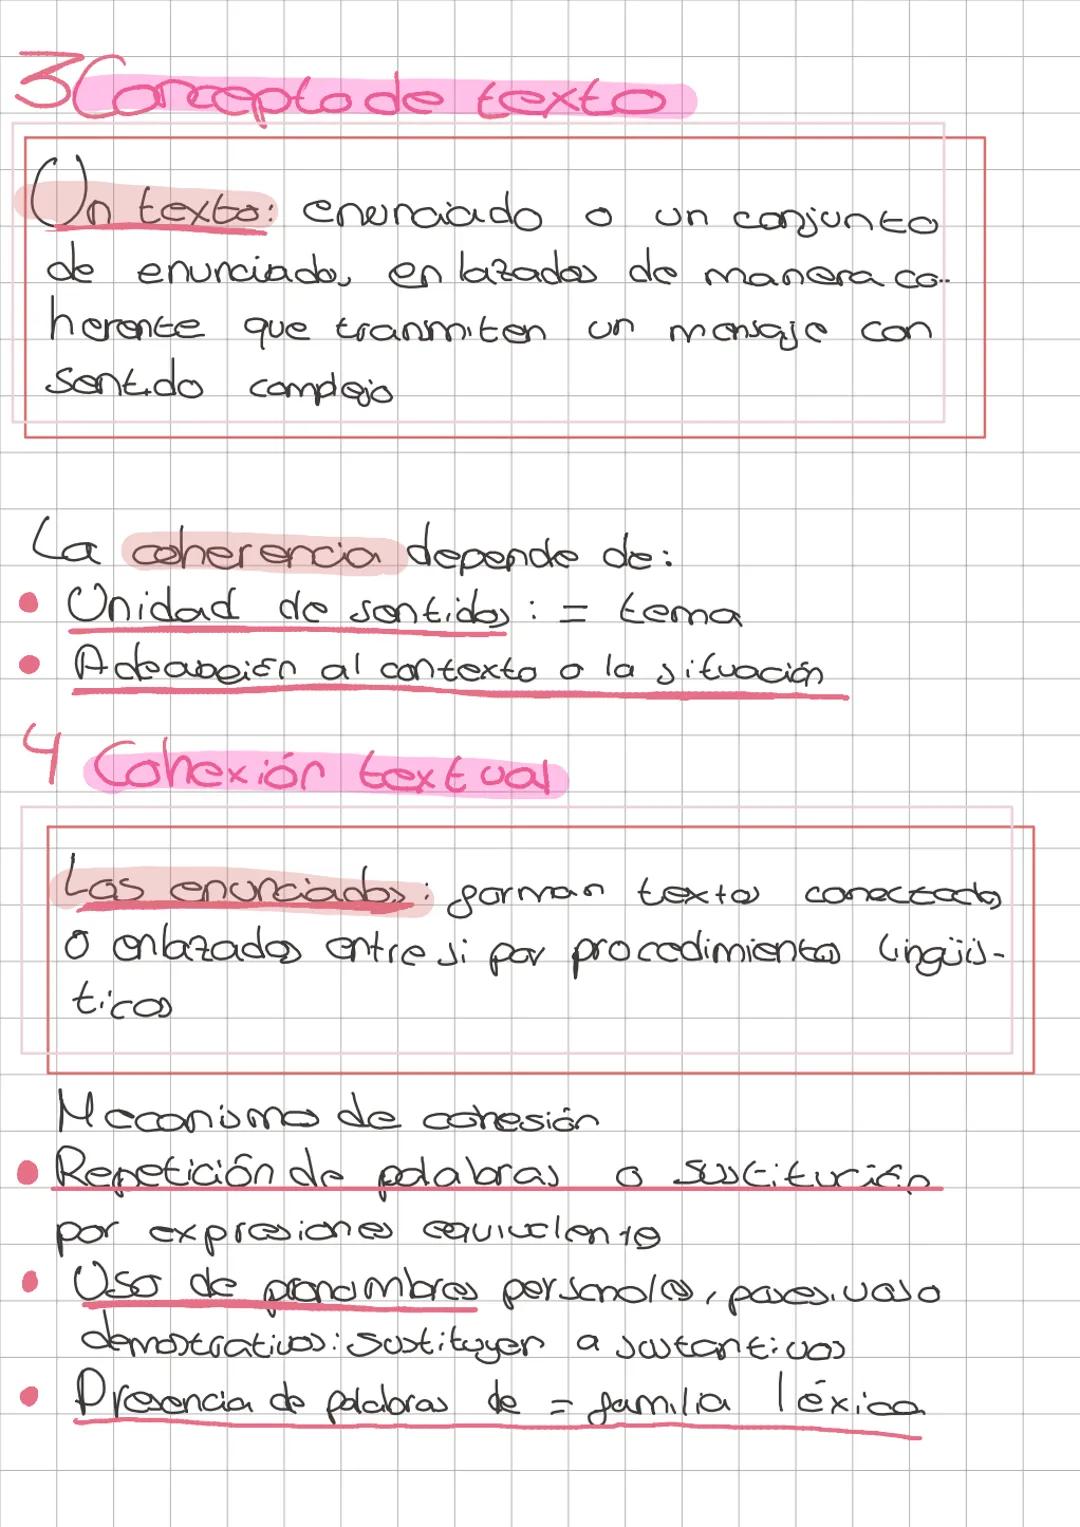 3 Concepto de texto
Un texto: enunciado o un conjunto
de enunciados, enlazados de manera co-
herente que tranmiten un mensaje con
sentido complejo
La coherencia depende de:
Unidad de sentidos : = tema
Adecuación al contexto o la situación
4 Cohexión textual
Los enunciados: forman textos conectados
o enlazados entre si por procedimientos lingüís-
ticos
Mecanismos de cohesión
Repetición de palabras o sustitución
por expresiones equivalentes
Uso de pronombres personales, posesivos o
demostrativos: sustituyen a sustantivos
Presencia de palabras de = familia léxica